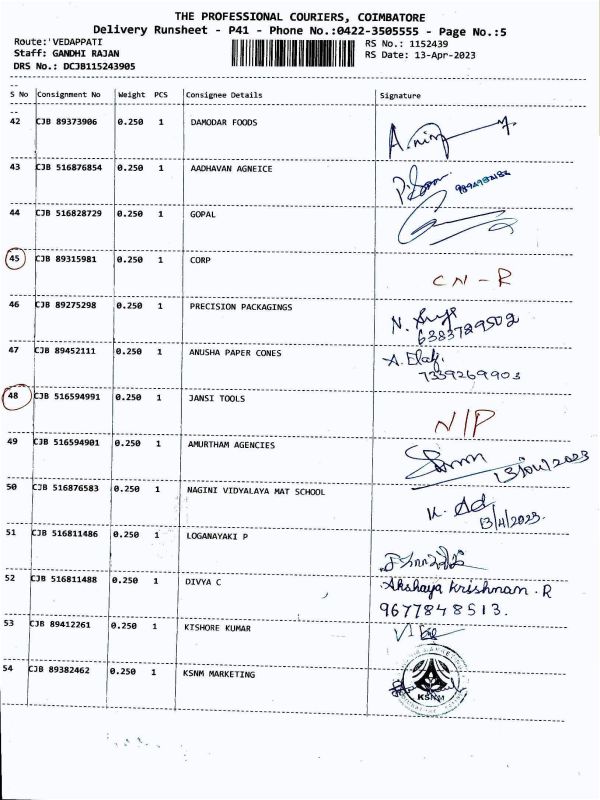 THE PROFESSIONAL COURIERS, COIMBATORE
Delivery Runsheet - P41 - Phone No.:0422-3505555 - Page No.:5
Route:'VEDAPPATI
RS No.: 1152439
Staff: GANDHI RAJAN
RS Date: 13-Apr-2023
DRS No.: DCJB115243905
S No Consignment No Weight PCS Consignee Details Signature
42 CJB 89373906 0.250 1 DAMODAR FOODS
43 CJB 516876854 0.250 1 AADHAVAN AGNEICE
44 CJB 516828729 0.250 1 GOPAL
45 CJB 89315981 0.250 1 CORP
CN - R
46 CJB 89275298 0.250 1 PRECISION PACKAGINGS
6383789502
47 CJB 89452111 0.250 1 ANUSHA PAPER CONES
7339269903
48 CJB 516594991 0.250 1 JANSI TOOLS
N/P
49 CJB 516594901 0.250 1 AMURTHAM AGENCIES
50 CJB 516876583 0.250 1 NAGINI VIDYALAYA MAT SCHOOL
13/4/2023.
51 CJB 516811486 0.250 1 LOGANAYAKI P
52 CJB 516811488 0.250 1 DIVYA C
Akshaya Krishnan . R
9677848513.
53 CJB 89412261 0.250 1 KISHORE KUMAR
54 CJB 89382462 0.250 1 KSNM MARKETING
KSNM